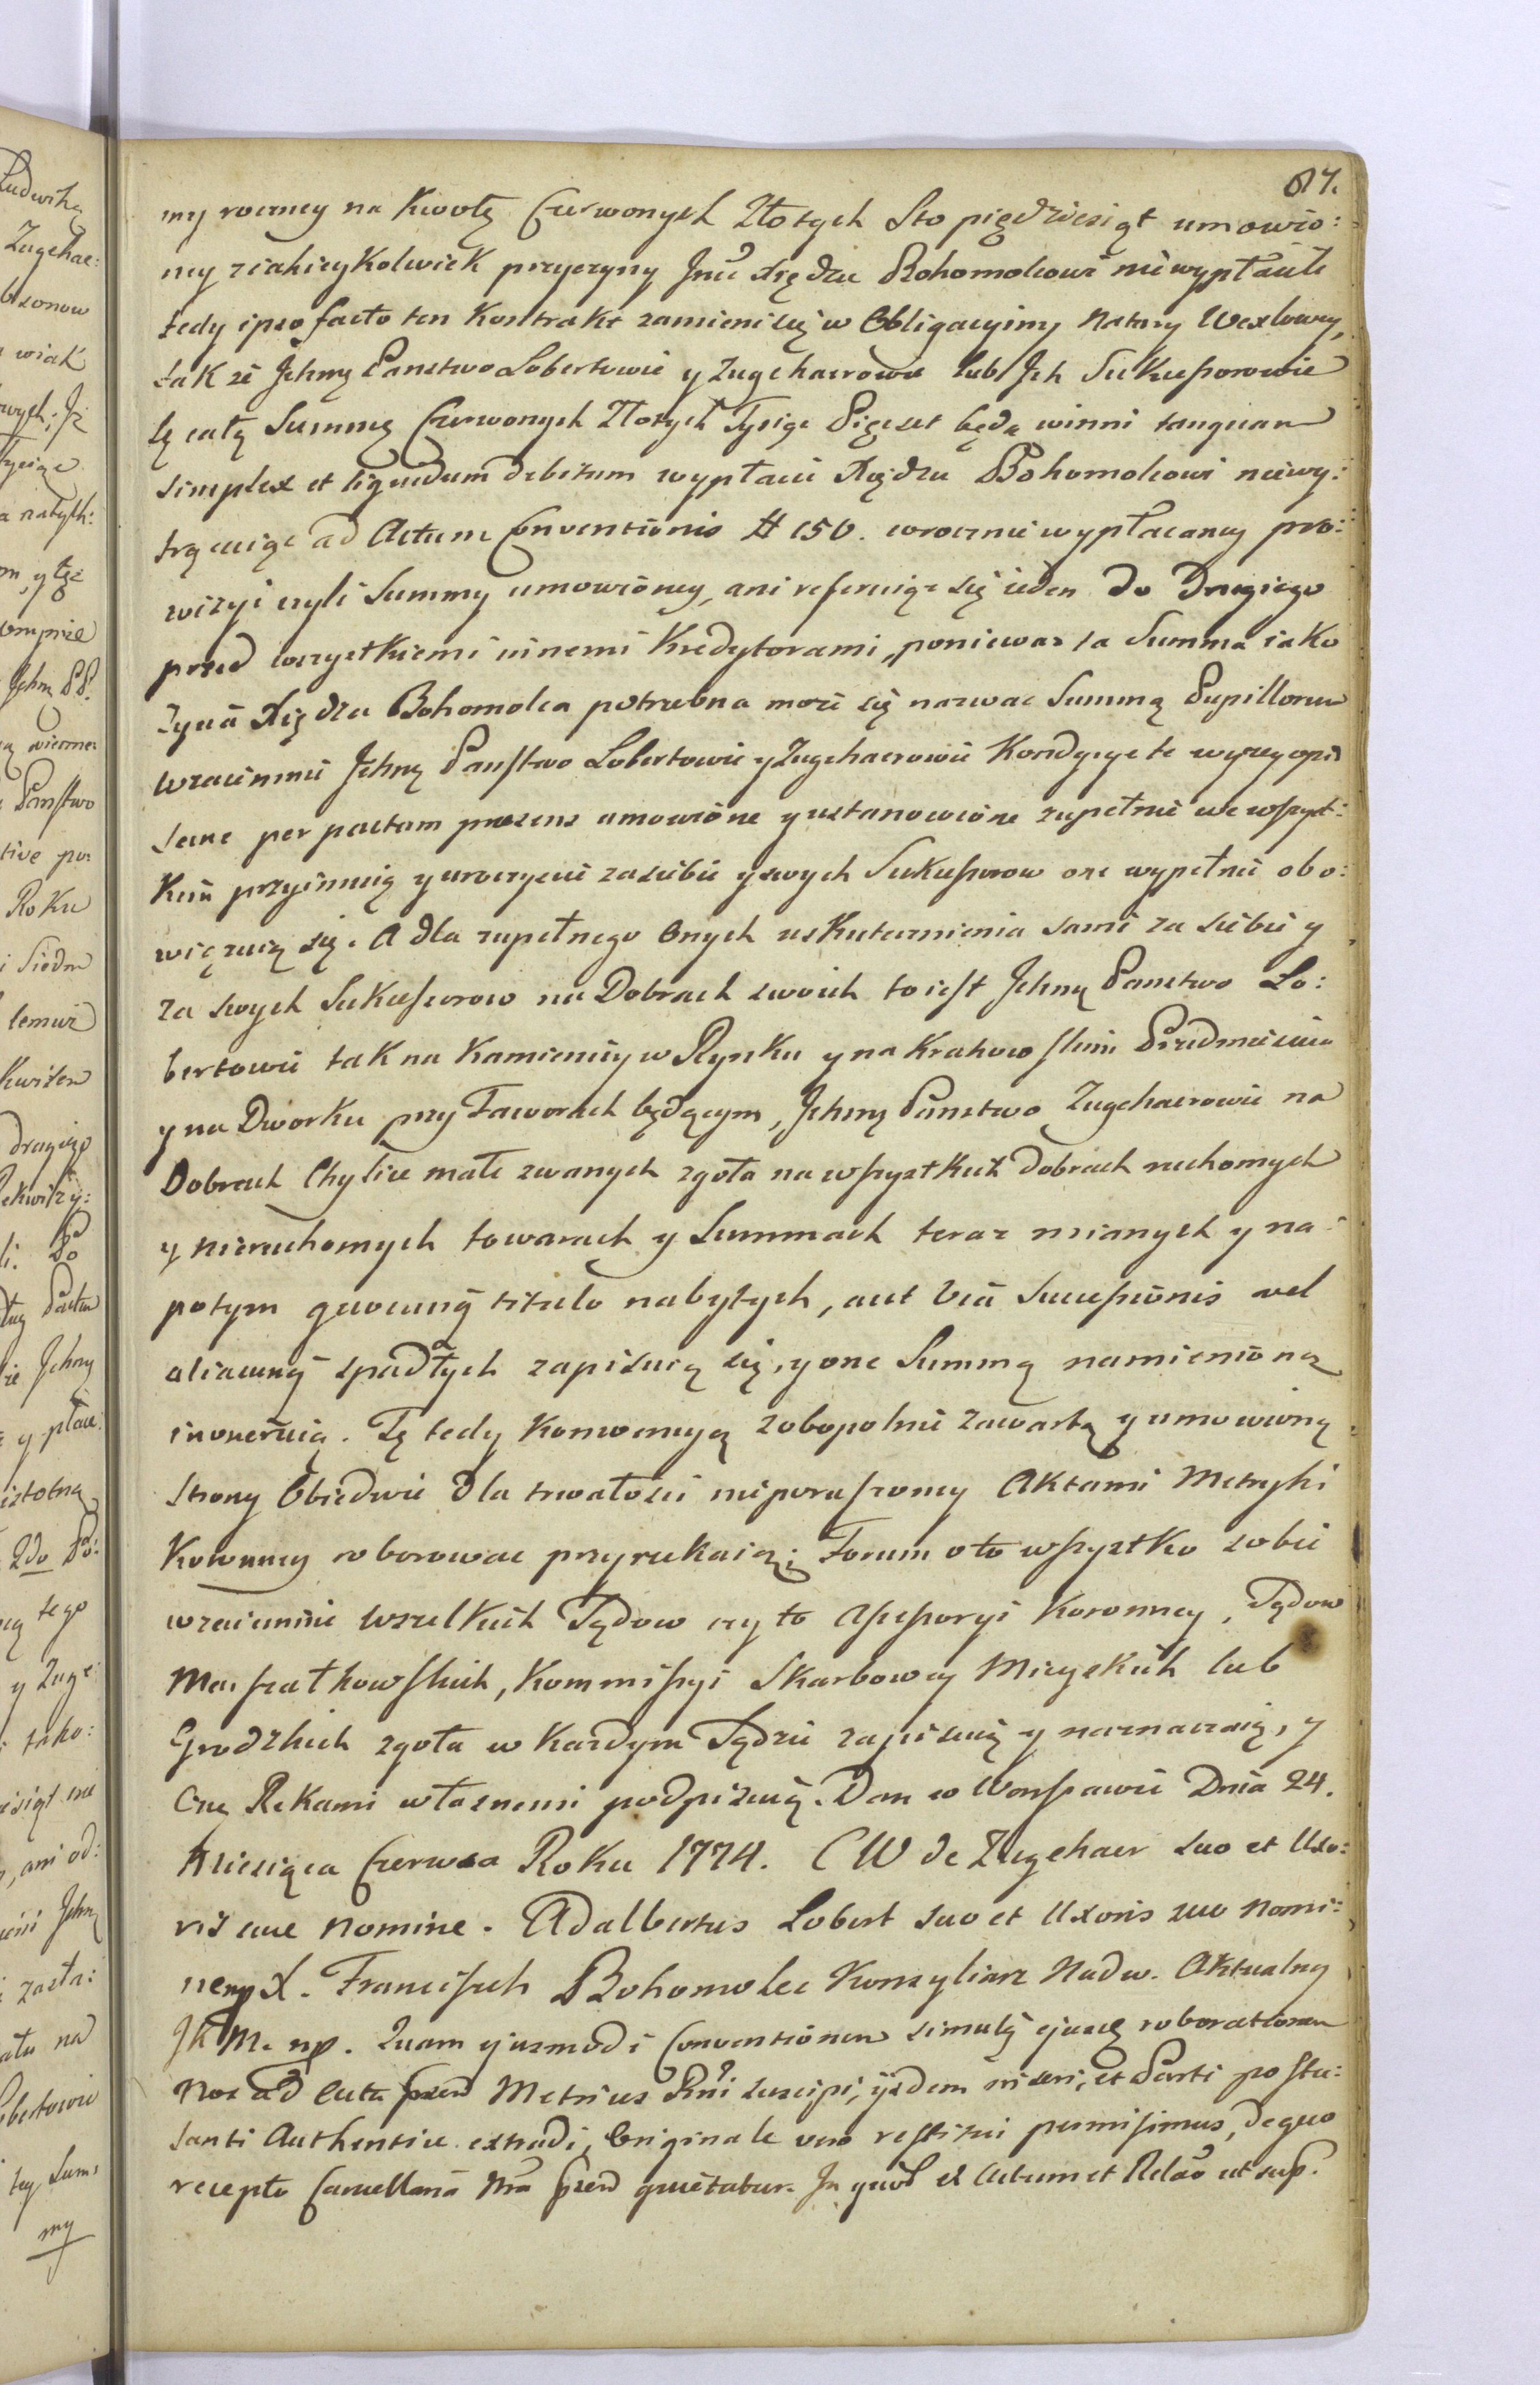 87.
my roczney na Kwotę Czerwonych Złotych Sto pięćdziesiąt umowio:
ney z iakieykolwiek przyczyny Jmć Xiędzu Bohomolcowi nie wypłacili
tedy ipso facto ten Kontrakt zamieni się w Obligacyiny Natury Wexlowey,
tak że Jchmę Panstwo Lobertowie y Zugehaerowie lub Jch Sukcessorowie
tę całą Summę Czerwonych Złotych Tysiąc Pięcset będą winni tanquam
simplex et liquidum debitum wypłacić Xiędzu Bohomolcowi niewy:
trącaiąc ad Actum Conventionis # 150. corocznie wypłacaney pro:
wizyi czyli Summy umowioney, ani referuiąc się ieden do Drugiego
przed wszystkiemi innemi Kredytorami, ponieważ ta Summa iako
życiu Xiędza Bohomolca potrzebna może się nazwac Summą Pupillorum
Wzaiemnie Jchmę Panstwo Lobertowie y Zugehaerowie Kondycye te wyżey opi
sane per pactum praesens umowione y ustanowione zupełnie we wszyst:
kim przyimuią y uroczyscie za siebie y swych Sukcessorow one wypełnić obo:
więzuią się. A dla zupełnego Onych uskutecznienia sami za siebie y
za swych Sukcessorow na Dobrach swoich to iest Jchmę Panstwo Lo:
bertowie tak na Kamienicy w Rynku y na Krakowskim Przedmiesciu
y na Dworku przy Taworach będącym, Jchmę Panstwo Zugehaerowie na
Dobrach Chylice małe zwanych zgoła na wszystkich Dobrach ruchomych
y nieruchomych towarach y Summach teraz mianych y na
potym quocunq titulo nabytych, aut via Successionis vel
aliacunq spadłych zapisuią się, y one Summą namienioną
inoneruią. Tę tedy Konwencyą zobopolnie zawartą y umowioną
Strony Obiedwie dla trwałosci nieporuszoney Aktami Metryki
Koronney roborowac przyrzekaią; Forum o to wszystko sobie
wzaiemnie wszelkich Sędow czy to Assessoryi Koronney, Sędow
Marszałkowskich, Kommissyi Skarbowey Mieyskich lub
Grodzkich zgoła w każdym Sędzie zapisuią y naznaczaią, y
Onę Rękami własnemi podpisuią. Dan w Warszawie Dnia 24.
Miesiąca Czerwca Roku 1774. C W de Zugehaer suo et Uxo:
ris suae Nomine. Adalbertus Lobert suo et Uxoris suae Nomi:
ne mp X. Franciszek Bohomolec Konsyliarz Nadw. Aktualny
JKM. mp. Quam ejusmodi Conventionem simulq ejusdę roborationem
Nos ad Acta Metrices Rni suscipi, ijsdem inseri, et Parti postu:
lanti Authentice extradi, Originale vero restitui permisimus, de quo
recepto Cancellaria Nra quietatur. In quor. et Actum et Relao ut sup.